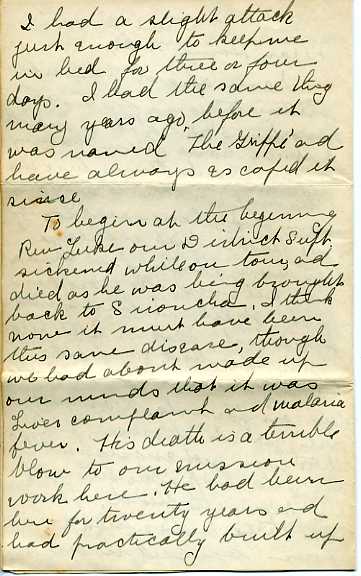 I had a slight attack
just enough to keep me
in bed for three or four
days. I had the same thing
many years ago, before it
was named "The Grippe" and
have always escaped it
since
To begin at the beginning
Rev. our District Supt,
sickened while on tour, and
died as he was being brought
back to Sironcha. I think
now it must have been
this same disease, though
we had about made up
our minds that it was
Liver complaint and malaria
fever. His death is a terrible
blow to our mission
work here. He had been
here for twenty years and
had practically built up